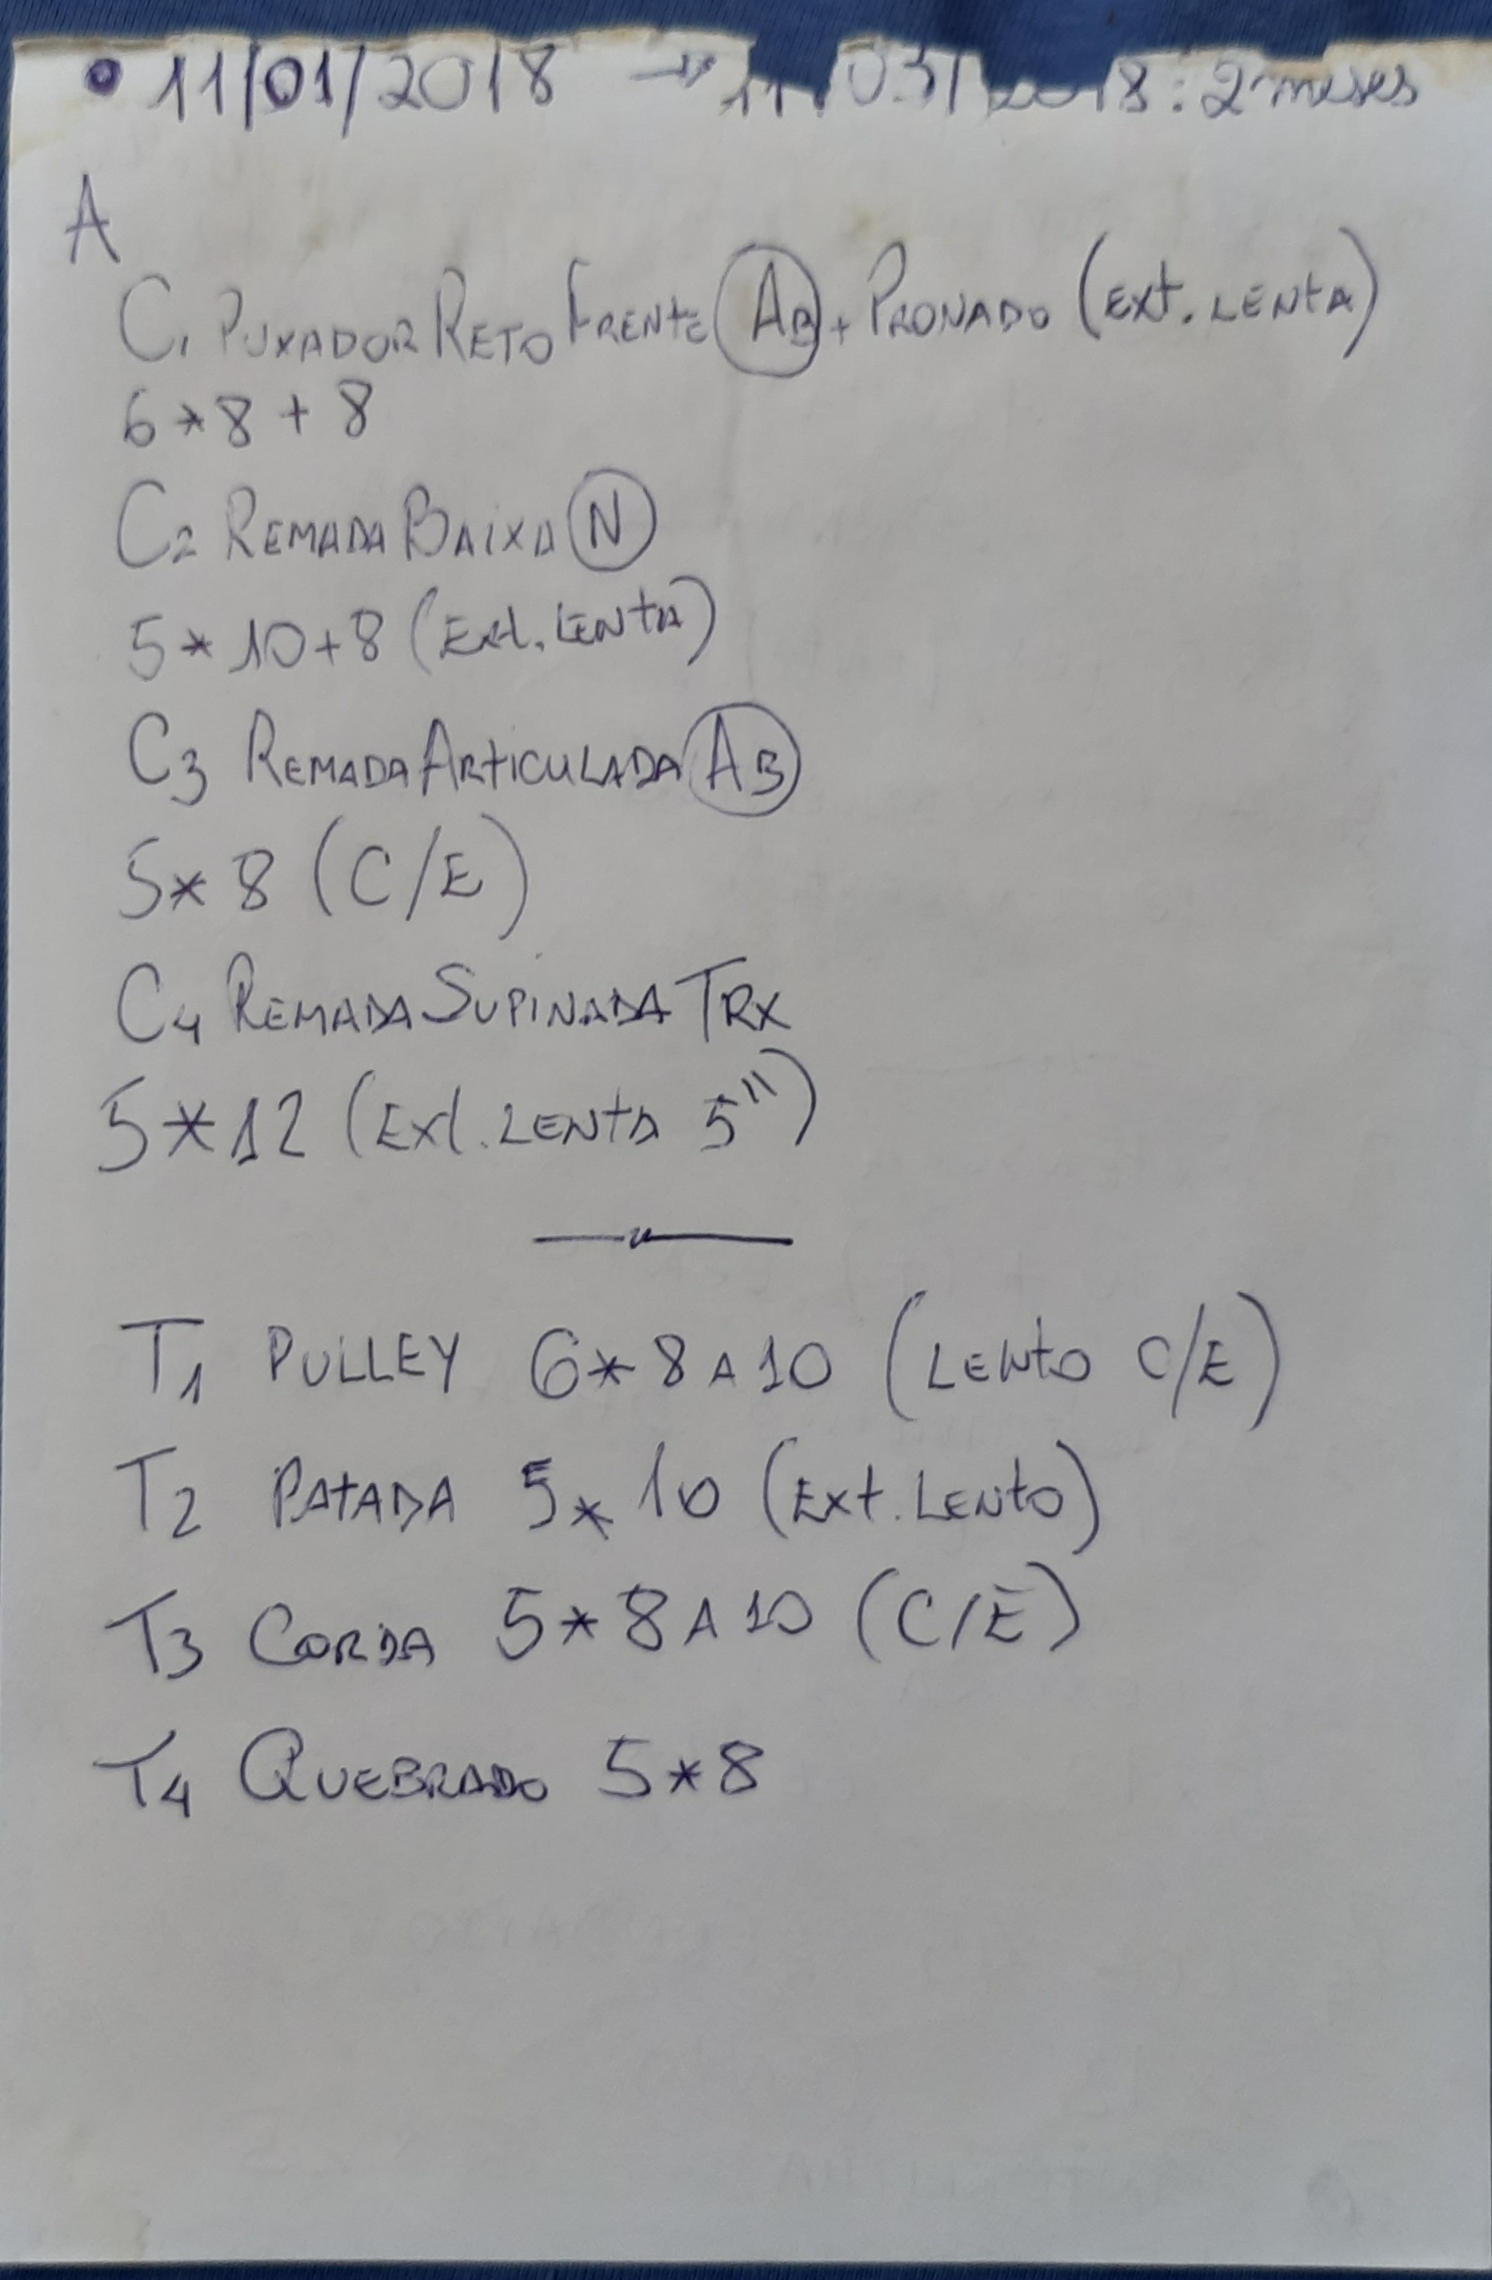 • 11/01/2018 → 11/03/2018: 2 meses
A
C1 PUXADOR RETO FRENTE AB + PRONADO (EXT. LENTA)
6*8+8
C2 REMADA BAIXA N
5*10+8 (EXT. LENTA)
C3 REMADA ARTICULADA AB
5*8 (C/E)
C4 REMADA SUPINADA TRX
5*12 (EXT. LENTA 5")
T1 PULLEY 6*8 A 10 (LENTO C/E)
T2 PATADA 5*10 (EXT. LENTO)
T3 CORDA 5*8 A 10 (C/E)
T4 QUEBRADO 5*8